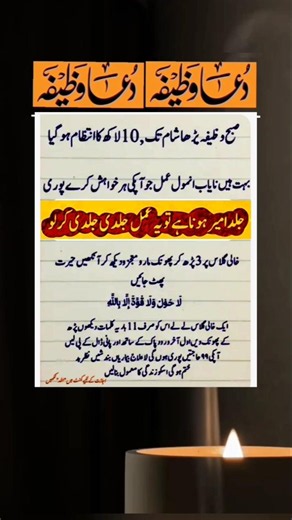 دُعا وظیفہ دُعا وظیفہ
صبح وظیفہ پڑھا شام تک 10,لاکھ کا انتظام ہو گیا
بہت ہیں نایاب انمول عمل جو آپکی ہر خواہش کرے پوری
جلد امیر ہونا ہے تو یہ عمل جلدی جلدی کر لو
خالی گلاس پر 3 پڑھ کر پھونک مارو معجزہ دیکھ کر آنکھیں حیرت
پھٹ جائیں
لَا حَوْلَ وَلَا قُوَّةَ إِلَّا بِاللَّهِ
ایک خالی گلاس لے لے اس کو صرف 11 بار یہ کلمات دیکھوں پڑھ
کے پھونک دیں اول آخر درود پاک کے ساتھ اور پانی ڈال کے پی لیں
آپکی 99 حاجتیں پوری ہوں گی لاعلاج بیماریاں بندشیں نظر بد
ختم ہو گی اسکو زندگی کا معمول بنالیں
اجازت کے لیے کمنٹ میں